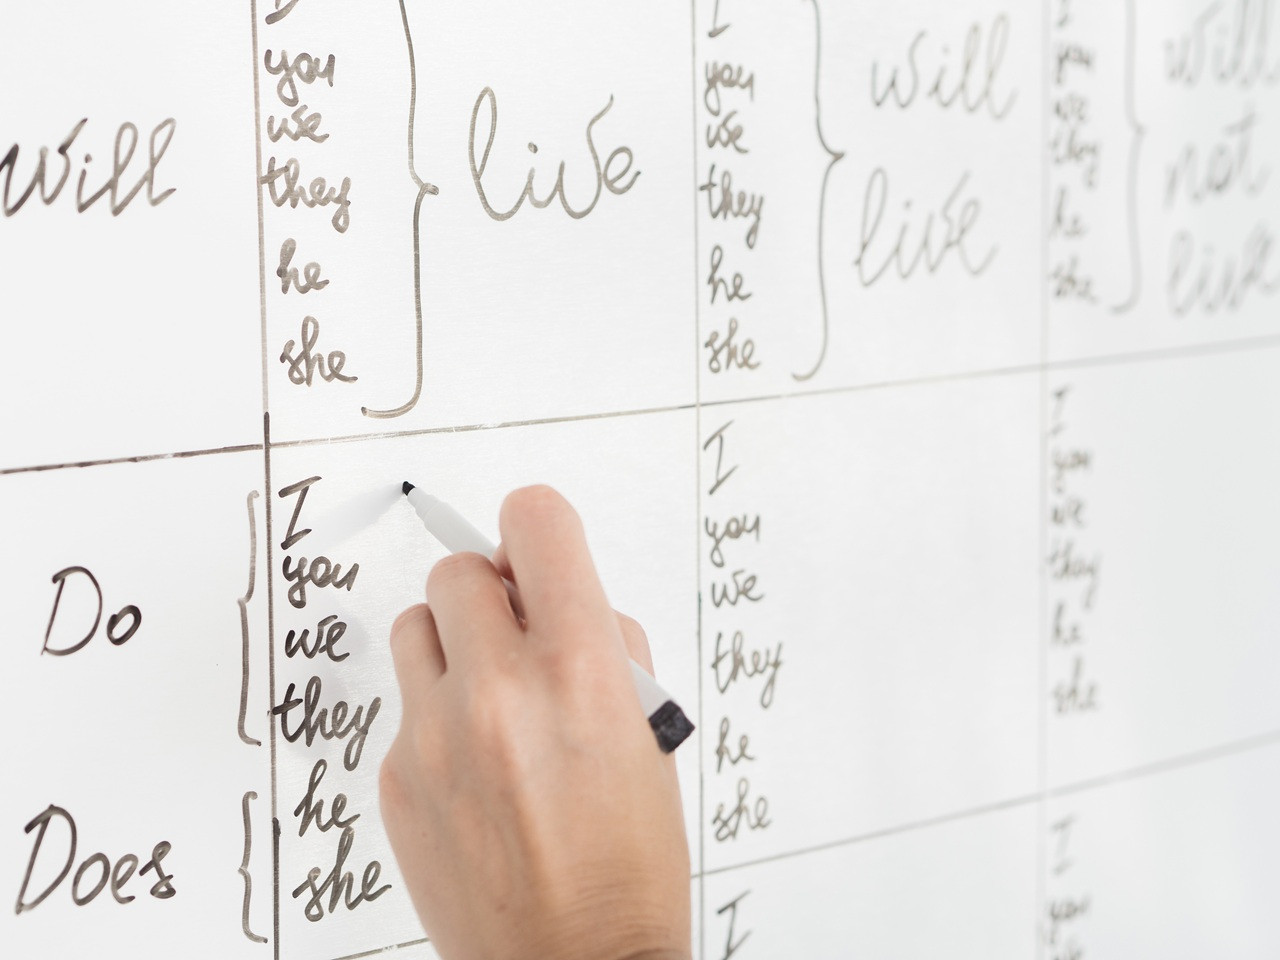 will
I
you
we
they
he
she
live
I
you
we
they
he
she
will
live
I
you
we
they
he
she
will
not
live
Do
Does
I
you
we
they
he
she
I
you
we
they
he
she
I
you
we
they
he
she
I
I
you
we